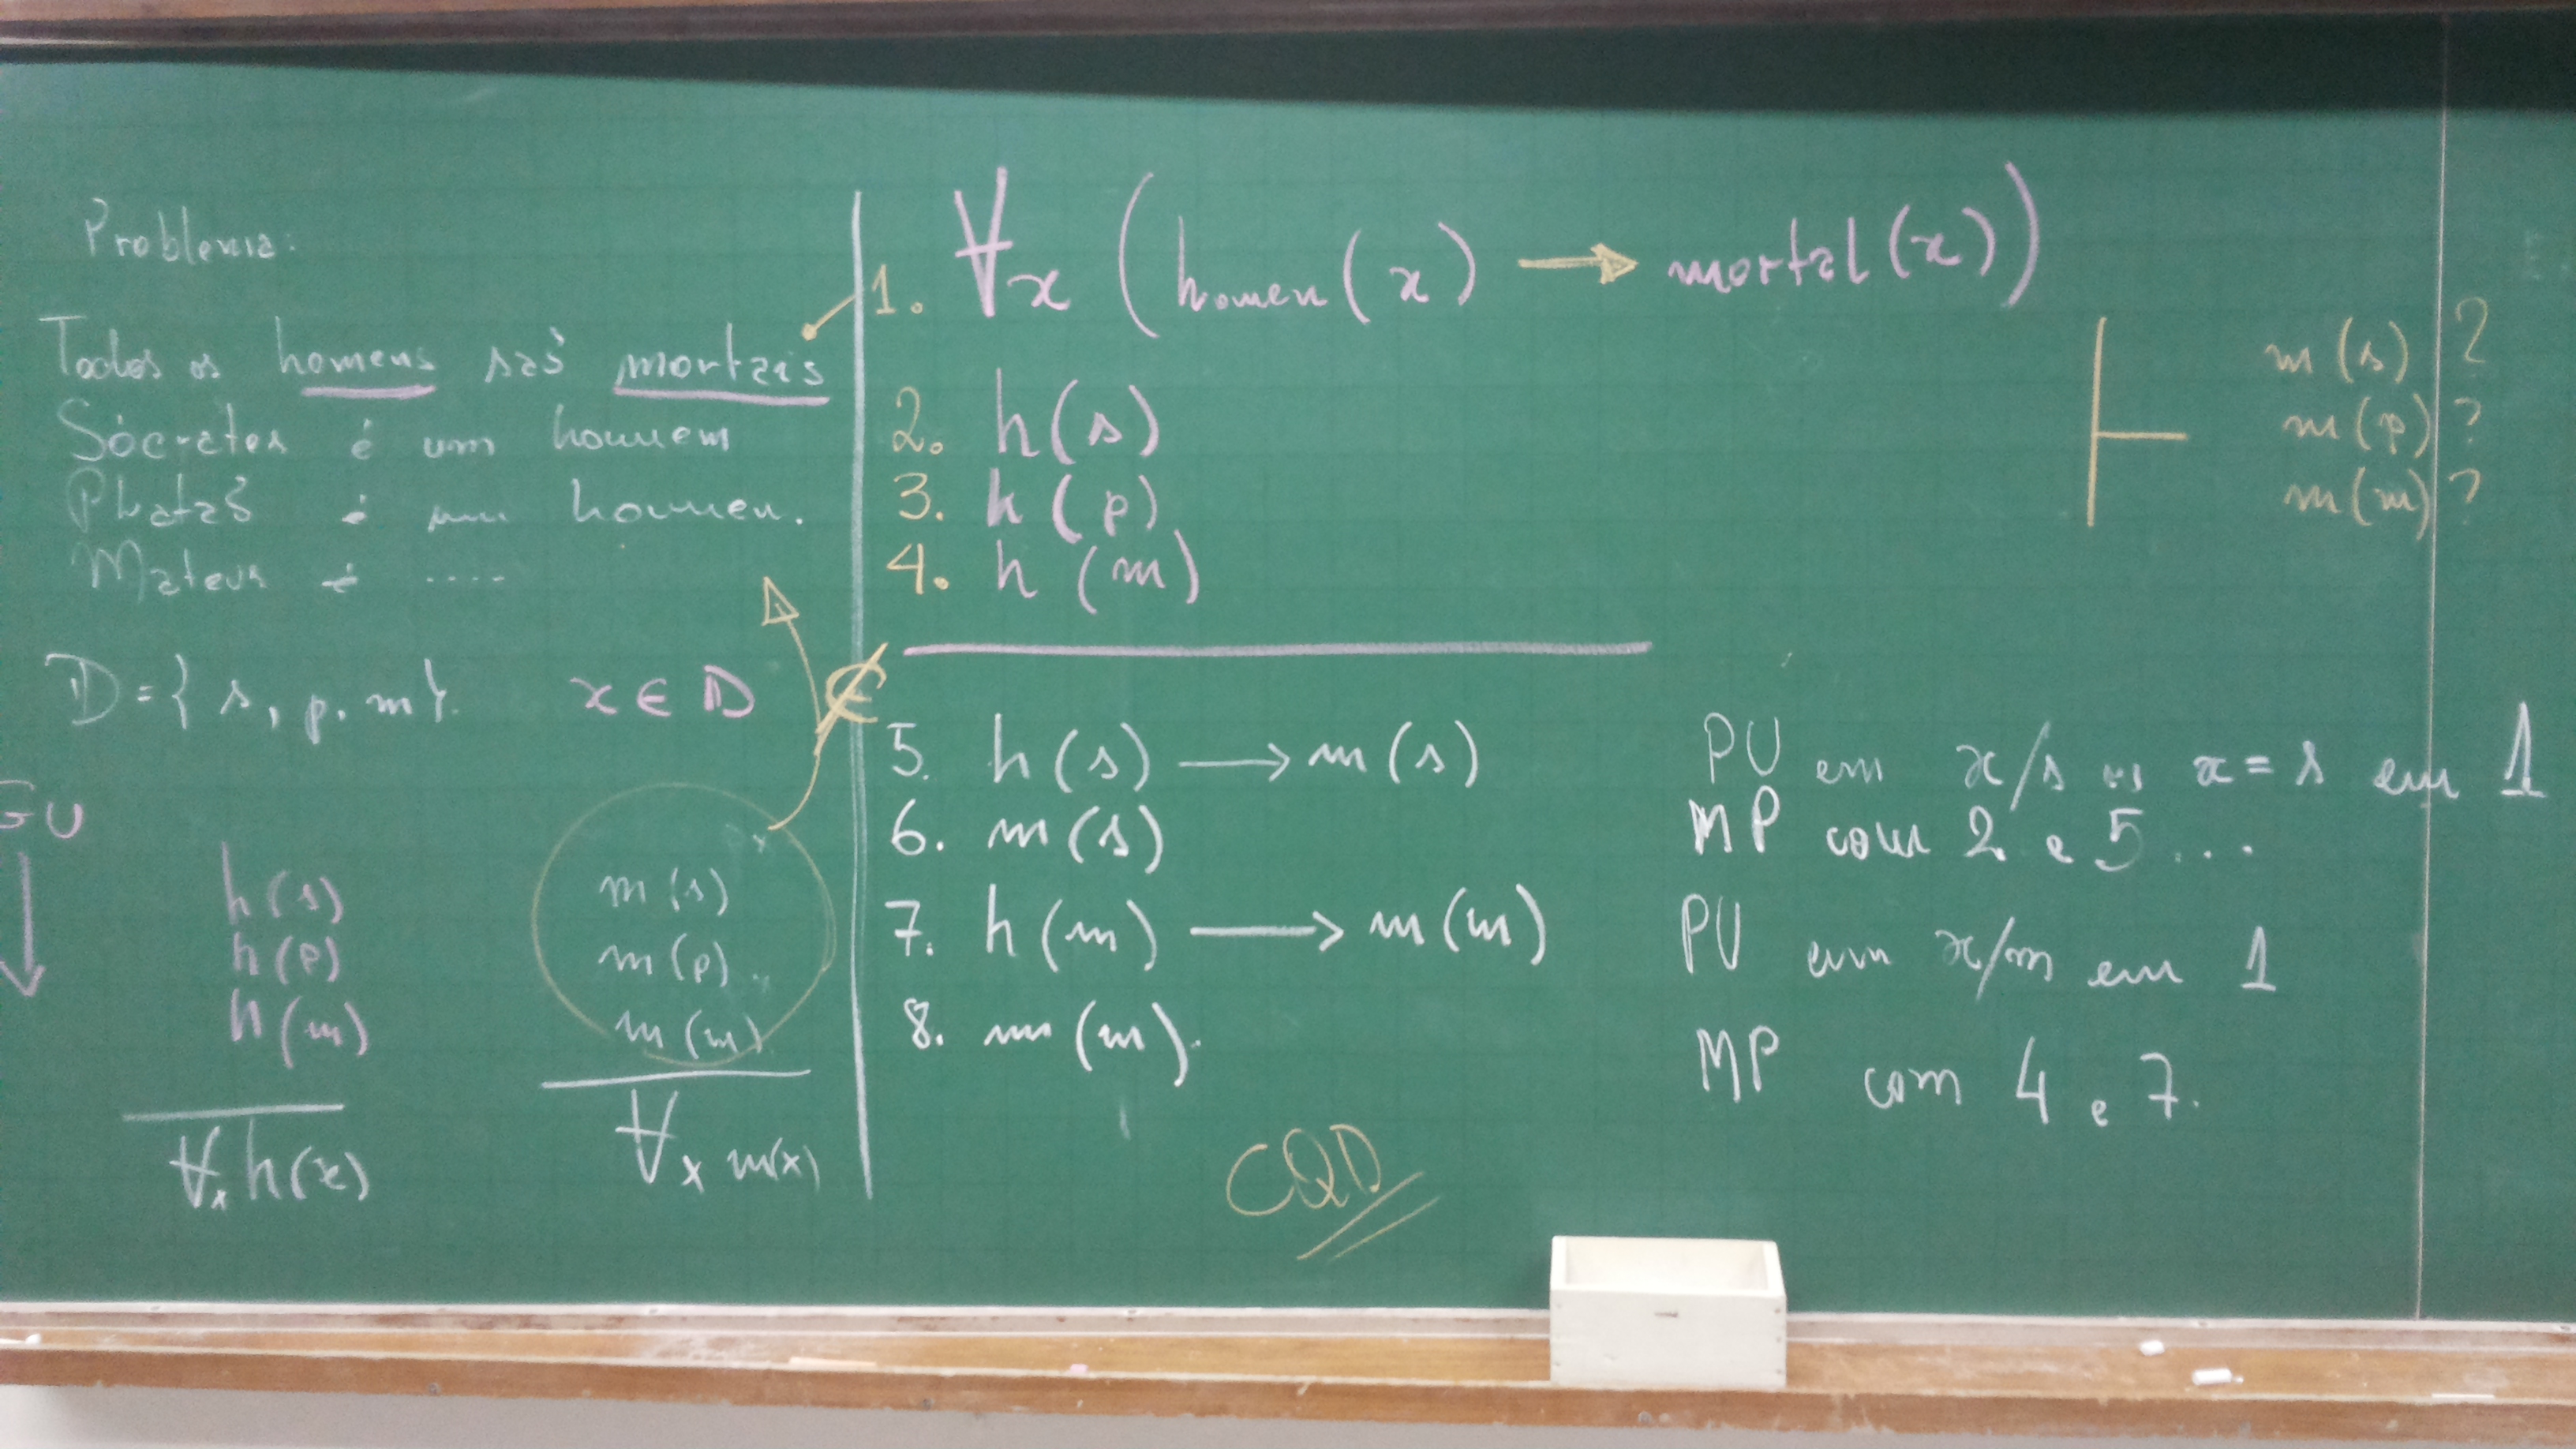 Problema:
Todos os homens são mortais
Sócrates é um homem
Platão é um homem.
Mateus é ....
D = { s, p, m }. x ∈ D
GU
h(s)
h(p)
h(m)
∀x h(x)
m(s)
m(p)
m(m)
∀x m(x)
1. ∀x ( homem(x) → mortal(x) )
2. h(s)
3. h(p)
4. h(m)
⊢ m(s) ?
m(p) ?
m(m) ?
∉
5. h(s) → m(s) PU em x/s ou x = s em 1
6. m(s) MP com 2 e 5...
7. h(m) → m(m) PU em x/m em 1
8. m(m). MP com 4 e 7.
CQD